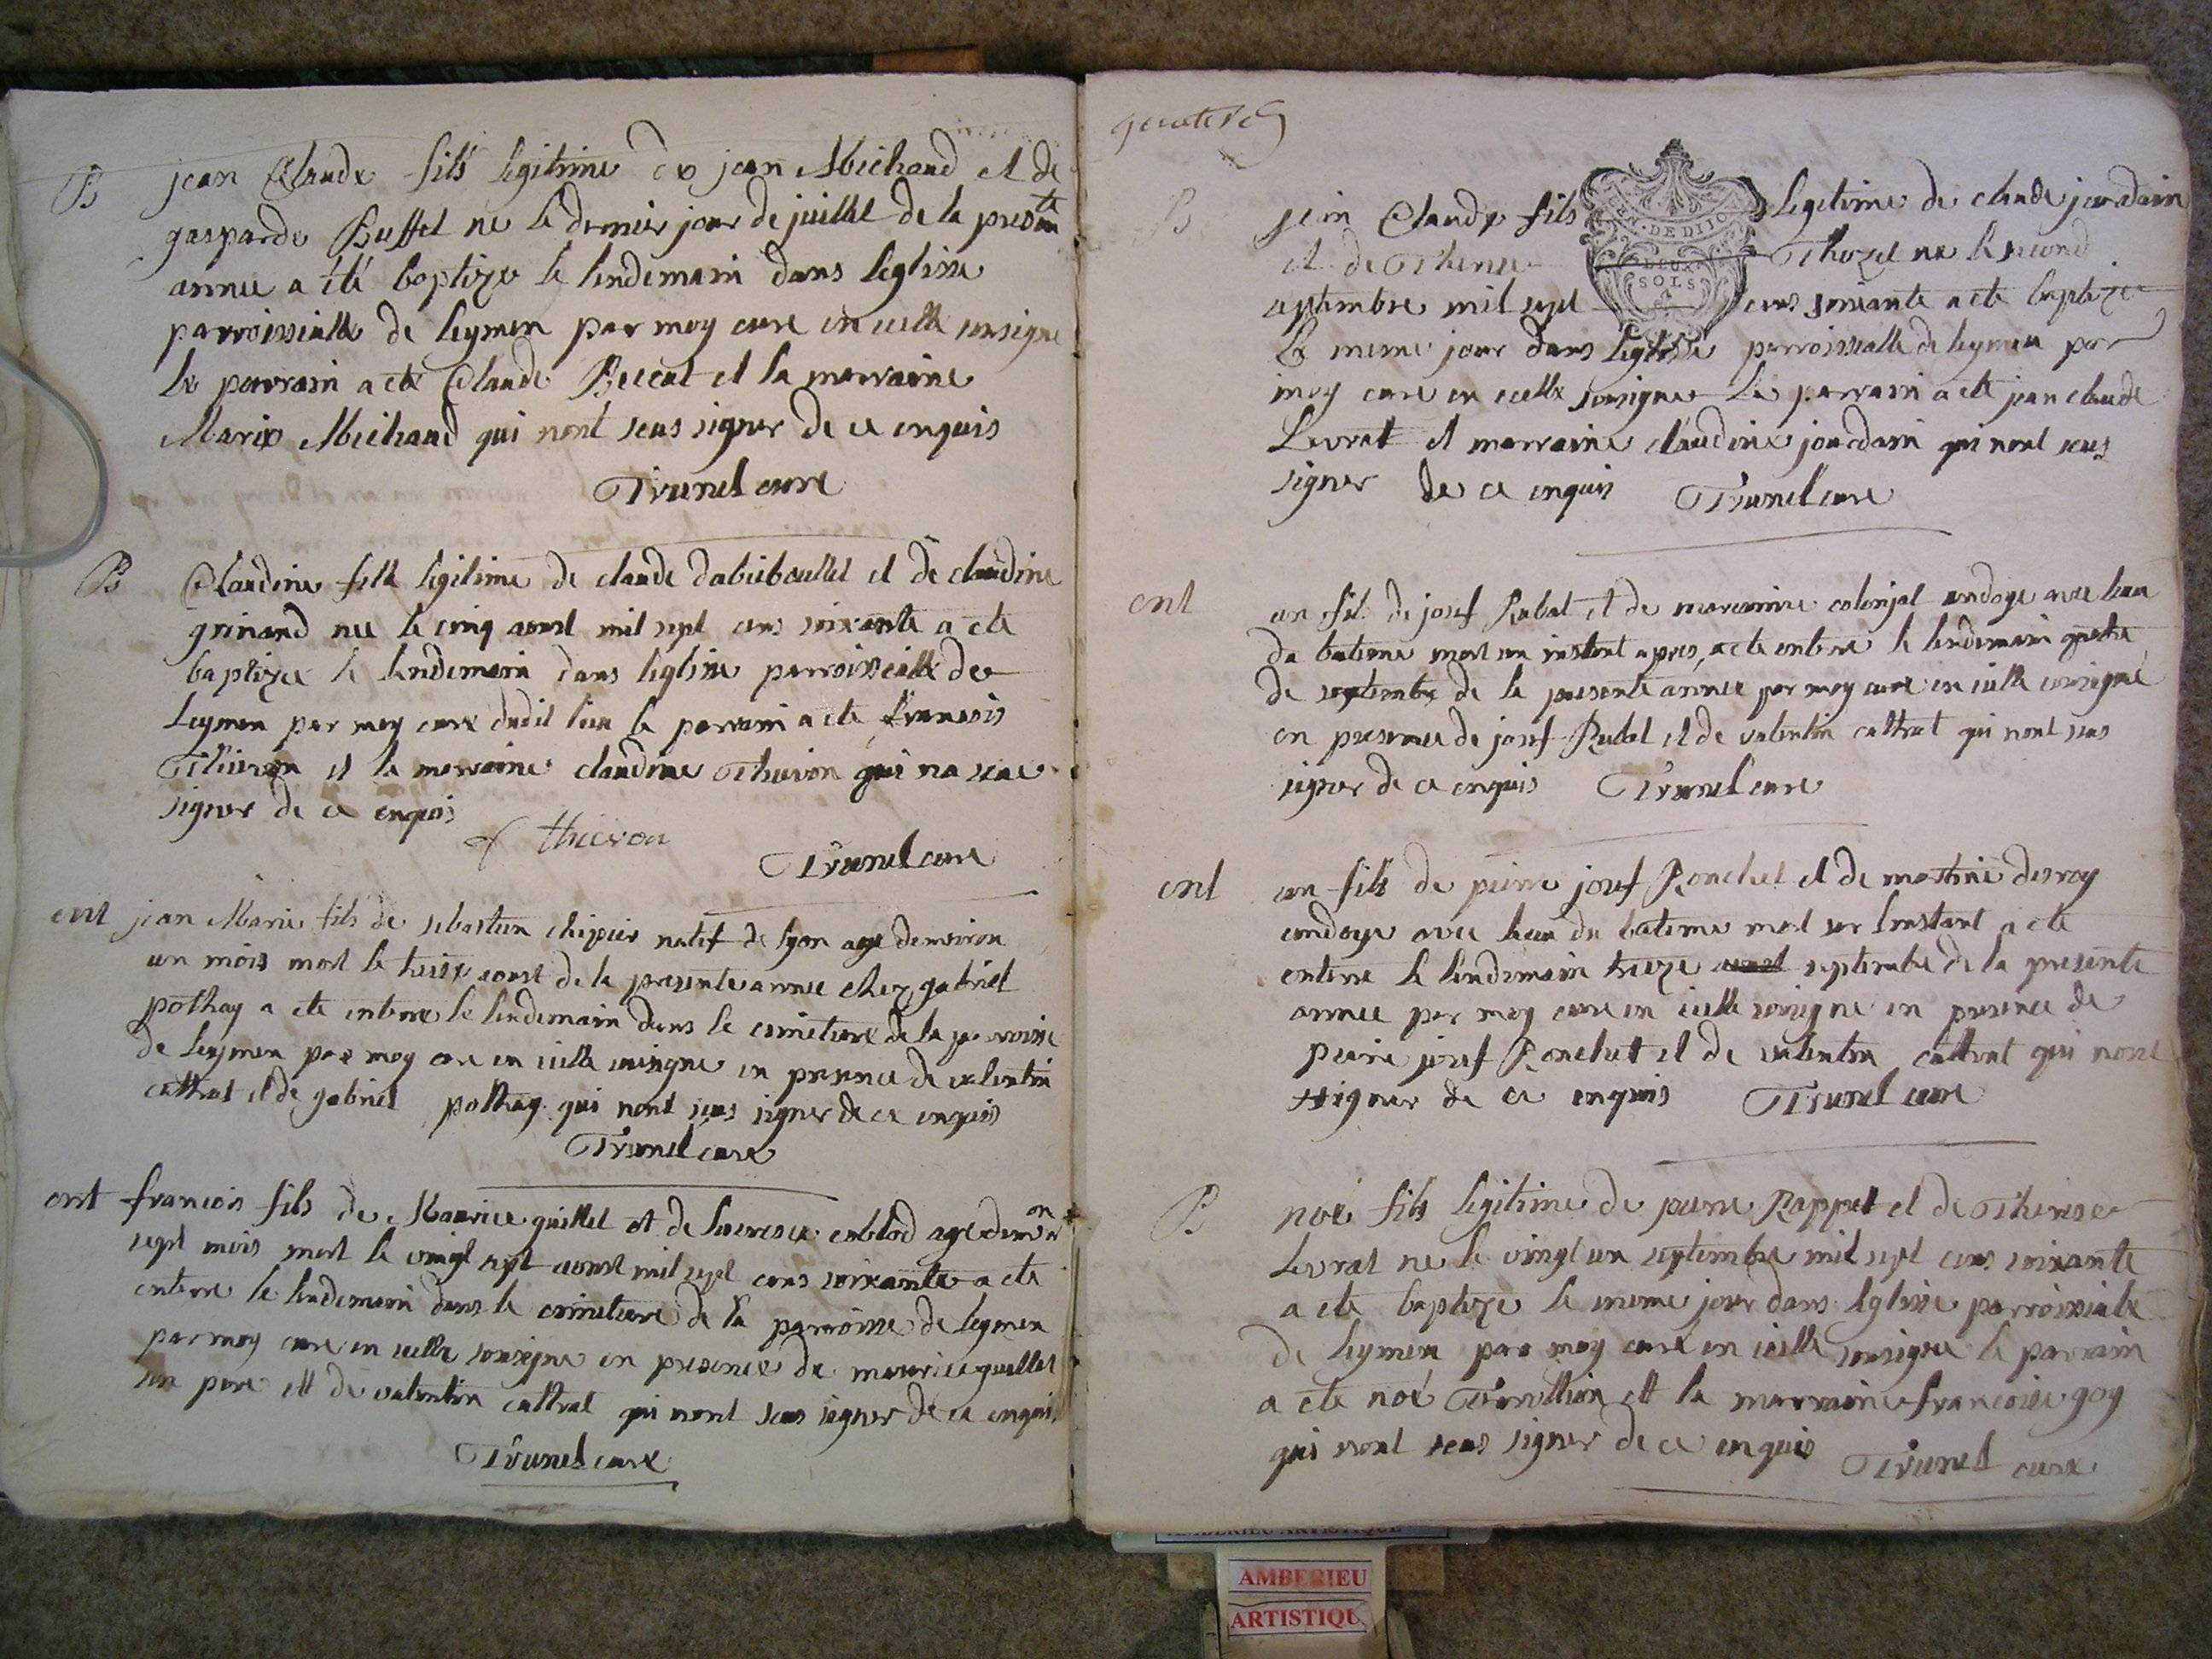 B jean Claude fils legitime de jean Michaud et de
gasparde Buffet ne le dernier jour de juillet de la presente
annee a été baptize le lendemain dans leglisse
parroissialle de leymen par moy cure en icelle sousigne
le parrain a ete Claude et la marraine
Marie Michaud qui nont seus signer de ce enquis
Trunel cure
B Claudine fille legitime de claude et de claudine
grinand nee le cinq aoust mil sept cens soixante a ete
baptizee le lendemain dans leglisse parroissialle de
Leymen par moy cure dudit lieu le parrain a ete francois
Thievon et la marraine claudine Thievon qui na seue
signer de ce enquis
f thievon
Trunel cure
ent jean Marie fils de sebastien chipier natif de lyon age denviron
un mois mort le treize aoust de la presente annee chez gabriel
pothay a ete enterre le lendemain dans le cimetiere de la parroisse
de leymen par moy cure en icelle sousigne en presence de valentin
cattrat et de gabriel pothay qui nont seus signer de ce enquis
Trunel cure
ent francois fils de Maurice guillet et de age denviron
sept mois mort le vingt sept aoust mil sept cens soixante a ete
enterre le lendemain dans le cimetiere de la parroisse de leymen
par moy cure en icelle sousigne en presence de maurice guillet
son pere et de valentin cattrat qui nont seus signer de ce enquis
Trunel cure
B jean Claude fils legitime de claude jourdain
GEN. DE DIJON
DEUX
SOLS
et de Therese Thozet ne le second
septembre mil sept cens soixante a ete baptize
le meme jour dans leglisse parroissialle de leymen par
moy cure en icelle sousigne le parrain a ete jean claude
Levrat et marraine claudine jourdain qui nont seus
signer de ce enquis Trunel cure
ent un fils de josef Rubat et de ondoye avec leau
du bateme mort un instant apres, a ete enterre le lendemain quatre
de septembre de la presente annee par moy cure en icelle sousigné
en presence de josef Rubat et de valentin cattrat qui nont seus
signer de ce enquis Trunel cure
ent un fils de pierre josef Ronchet et de desroy
ondoye avec leau du bateme mort sur linstant a ete
enterre le lendemain treize aoust septembre de la presente
annee par moy cure en icelle sousigne en presence de
pierre josef Ronchet et de valentin cattrat qui nont
signer de ce enquis Trunel cure
B noé fils legitime de pierre Rappet et de Therese
Levrat ne le vingt un septembre mil sept cens soixante
a ete baptize le meme jour dans leglisse parroissiale
de leymen par moy cure en icelle sousigne le parrain
a ete noé et la marraine francoise goy
qui nont seus signer de ce enquis Trunel cure
AMBERIEU ARTISTIQUE
AMBERIEU
ARTISTIQU